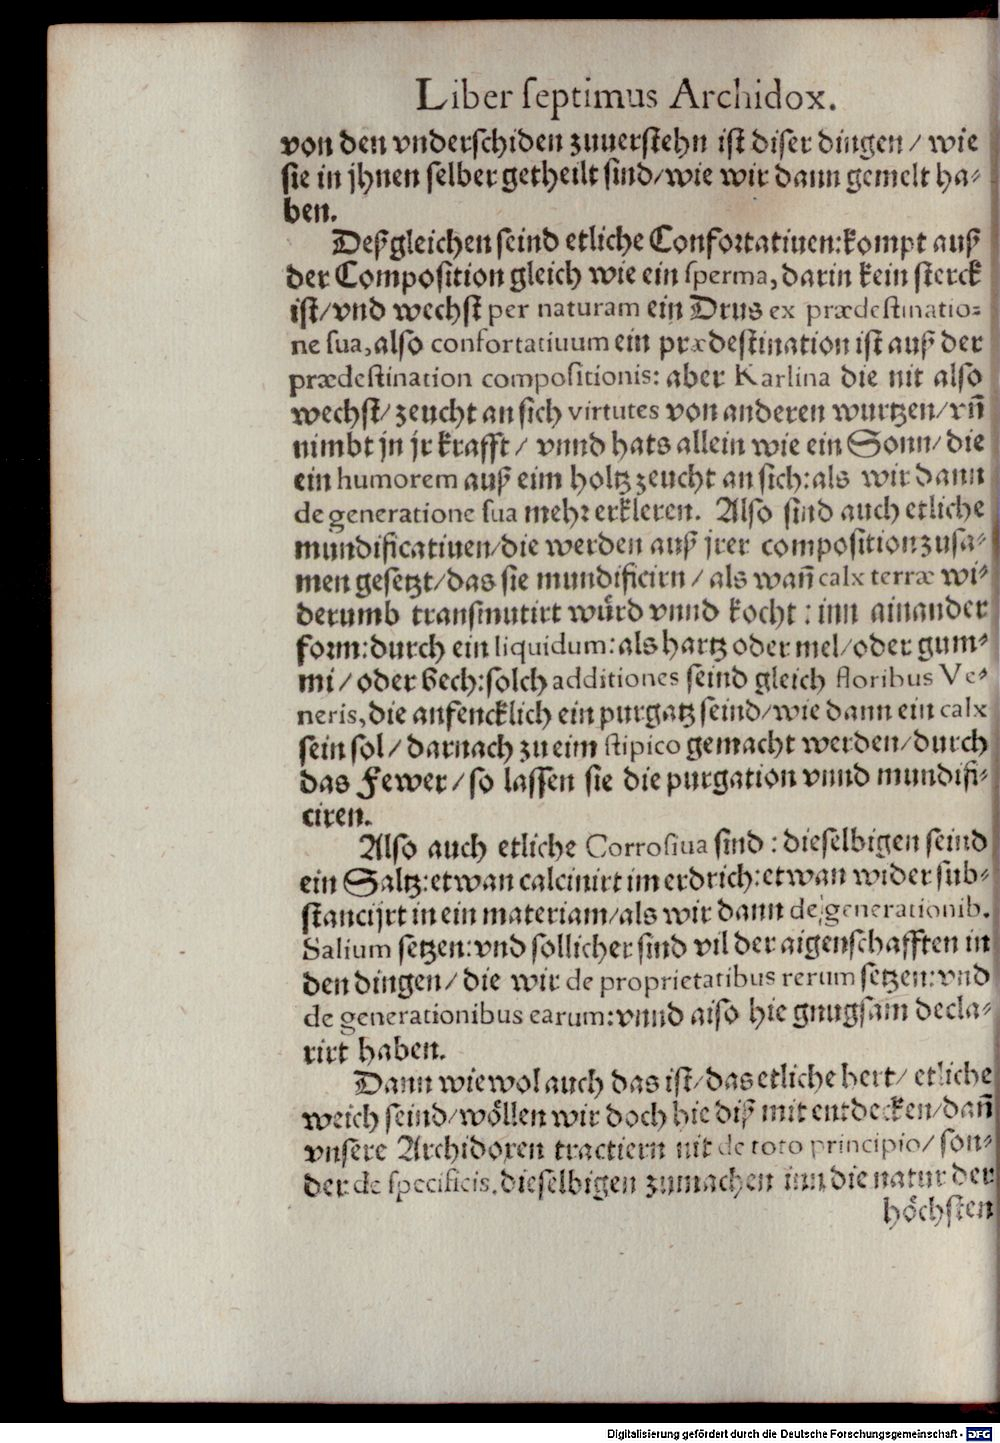 Liber ſeptimus Archidox.
von den vnderſchiden zuuerſtehn iſt diſer dingen / wie
ſie in jhnen ſelber getheilt ſind/wie wir dann gemelt ha⸗
ben.
Deßgleichen ſeind etliche Confortatiuen:kompt auß
der Compoſition gleich wie ein ſperma, darin kein ſterck
iſt/vnd wechſt per naturam ein Drus ex prædeſtinatio⸗
ne ſua, alſo confortatiuum ein prædeſtination iſt auß der
prædeſtination compoſitionis: aber Karlina die nit alſo
wechſt/ zeucht an ſich virtutes von anderen wurtzen/ vñ
nimbt jn jr krafft / vnnd hats allein wie ein Sonn/ die
ein humorem auß eim holtz zeucht an ſich:als wir dann
de generatione ſua mehr erkleren. Alſo ſind auch etliche
mundificatiuen/die werden auß jrer compoſition zuſa⸗
men geſetzt/das ſie mundificirn / als wañ calx terræ wi⸗
derumb tranſmutirt würd vnnd kocht : inn ainander
form:durch ein liquidum:als hartz oder mel/oder gum⸗
mi / oder bech:ſolch additiones ſeind gleich floribus Ve⸗
neris, die anfencklich ein purgatz ſeind/wie dann ein calx
ſein ſol / darnach zu eim ſtipico gemacht werden/durch
das Fewer / ſo laſſen ſie die purgation vnnd mundifi⸗
ciren.
Alſo auch etliche Corroſiua ſind : dieſelbigen ſeind
ein Saltz:etwan calcinirt im erdrich:etwan wider ſub⸗
ſtancijrt in ein materiam/als wir dann de generationib.
Salium ſetzen:vnd ſollicher ſind vil der aigenſchafften in
den dingen / die wir de proprietatibus rerum ſetzen:vnd
de generationibus earum:vnnd alſo hie gnugſam decla⸗
rirt haben.
Dann wiewol auch das iſt/das etliche hert/ etliche
weich ſeind/wöllen wir doch hie diß mit entdecken/dañ
vnſere Archidoxen tractiern nit de toto principio/ ſon⸗
der de ſpecificis, dieſelbigen zumachen inn die natur der
höchſten
Digitalisierung gefördert durch die Deutsche Forschungsgemeinschaft - DFG